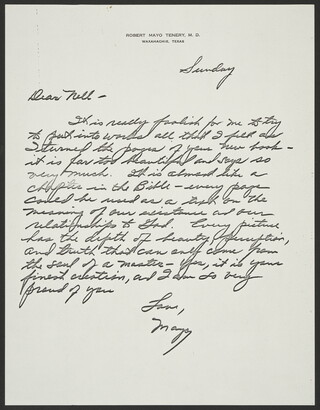 ROBERT MAYO TENERY, M. D.
WAXAHACHIE, TEXAS
Sunday
Dear Nell —
It is really foolish for me to try
to put into words all that I feel as
I turned the pages of your new book —
it is far too beautiful and says so
very much. It is almost like a
chapter in the Bible — every page
could be used as a text on the
meaning of our existence and our
relationship to God. Every picture
has the depth of beauty, perception,
and truth that can only come from
the soul of a master — Yes, it is your
finest creation, and I am so very
proud of you
Love,
Mayo